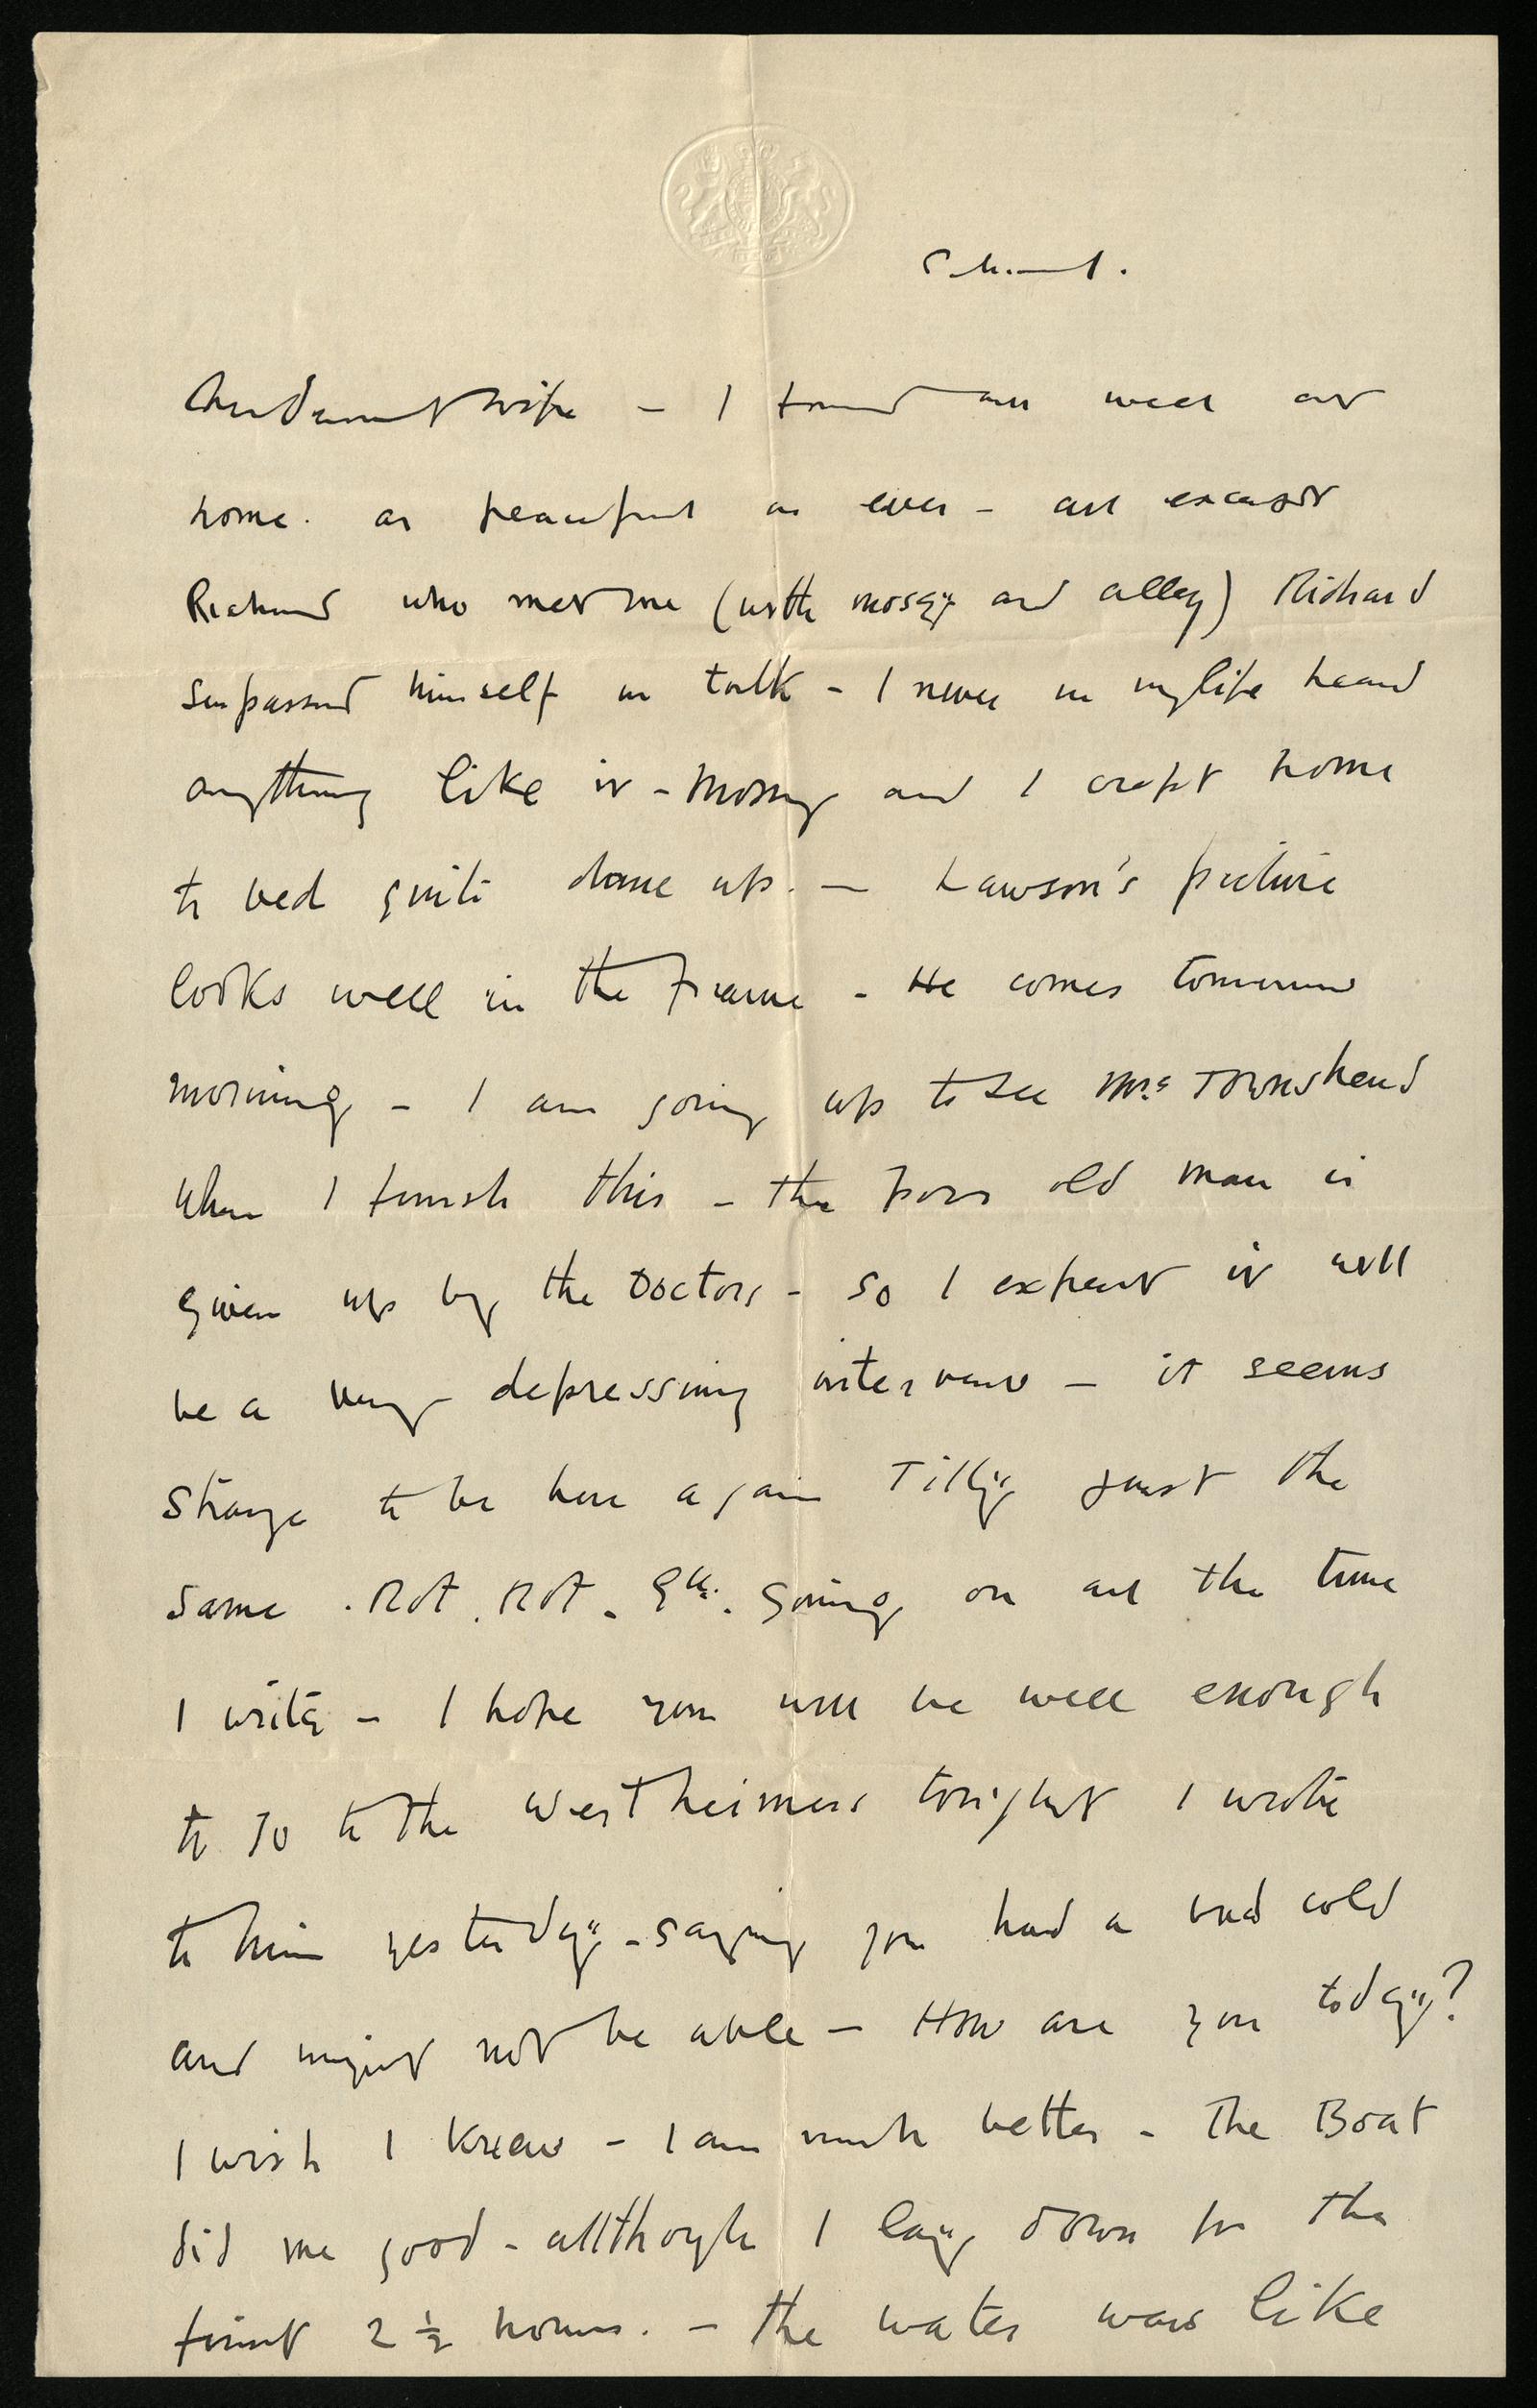 wife - I found all well at
home. as peaceful as ever - all except
Richard who met me (with mossy and alley) Richard
surpassed himself in talk - I never in my life heard
anything like it - Mossy and I crept home
to bed quite done up. - Lawson's picture
looks well in the frame - He comes tomorrow
morning - I am going up to see Mrs Townshend
when I finish this - the poor old man is
given up by the Doctors - so I expect it will
be a very depressing interview - it seems
strange to be here again Tilly just the
same . Rot . Rot . going on all the time
I write - I hope you will be well enough
to go to the Wertheimers tonight I wrote
to him yesterday - saying you had a bad cold
and might not be able - How are you today?
I wish I knew - I am much better - The Boat
did me good - allthough I lay down for the
first 2 ½ hours. - the water was like